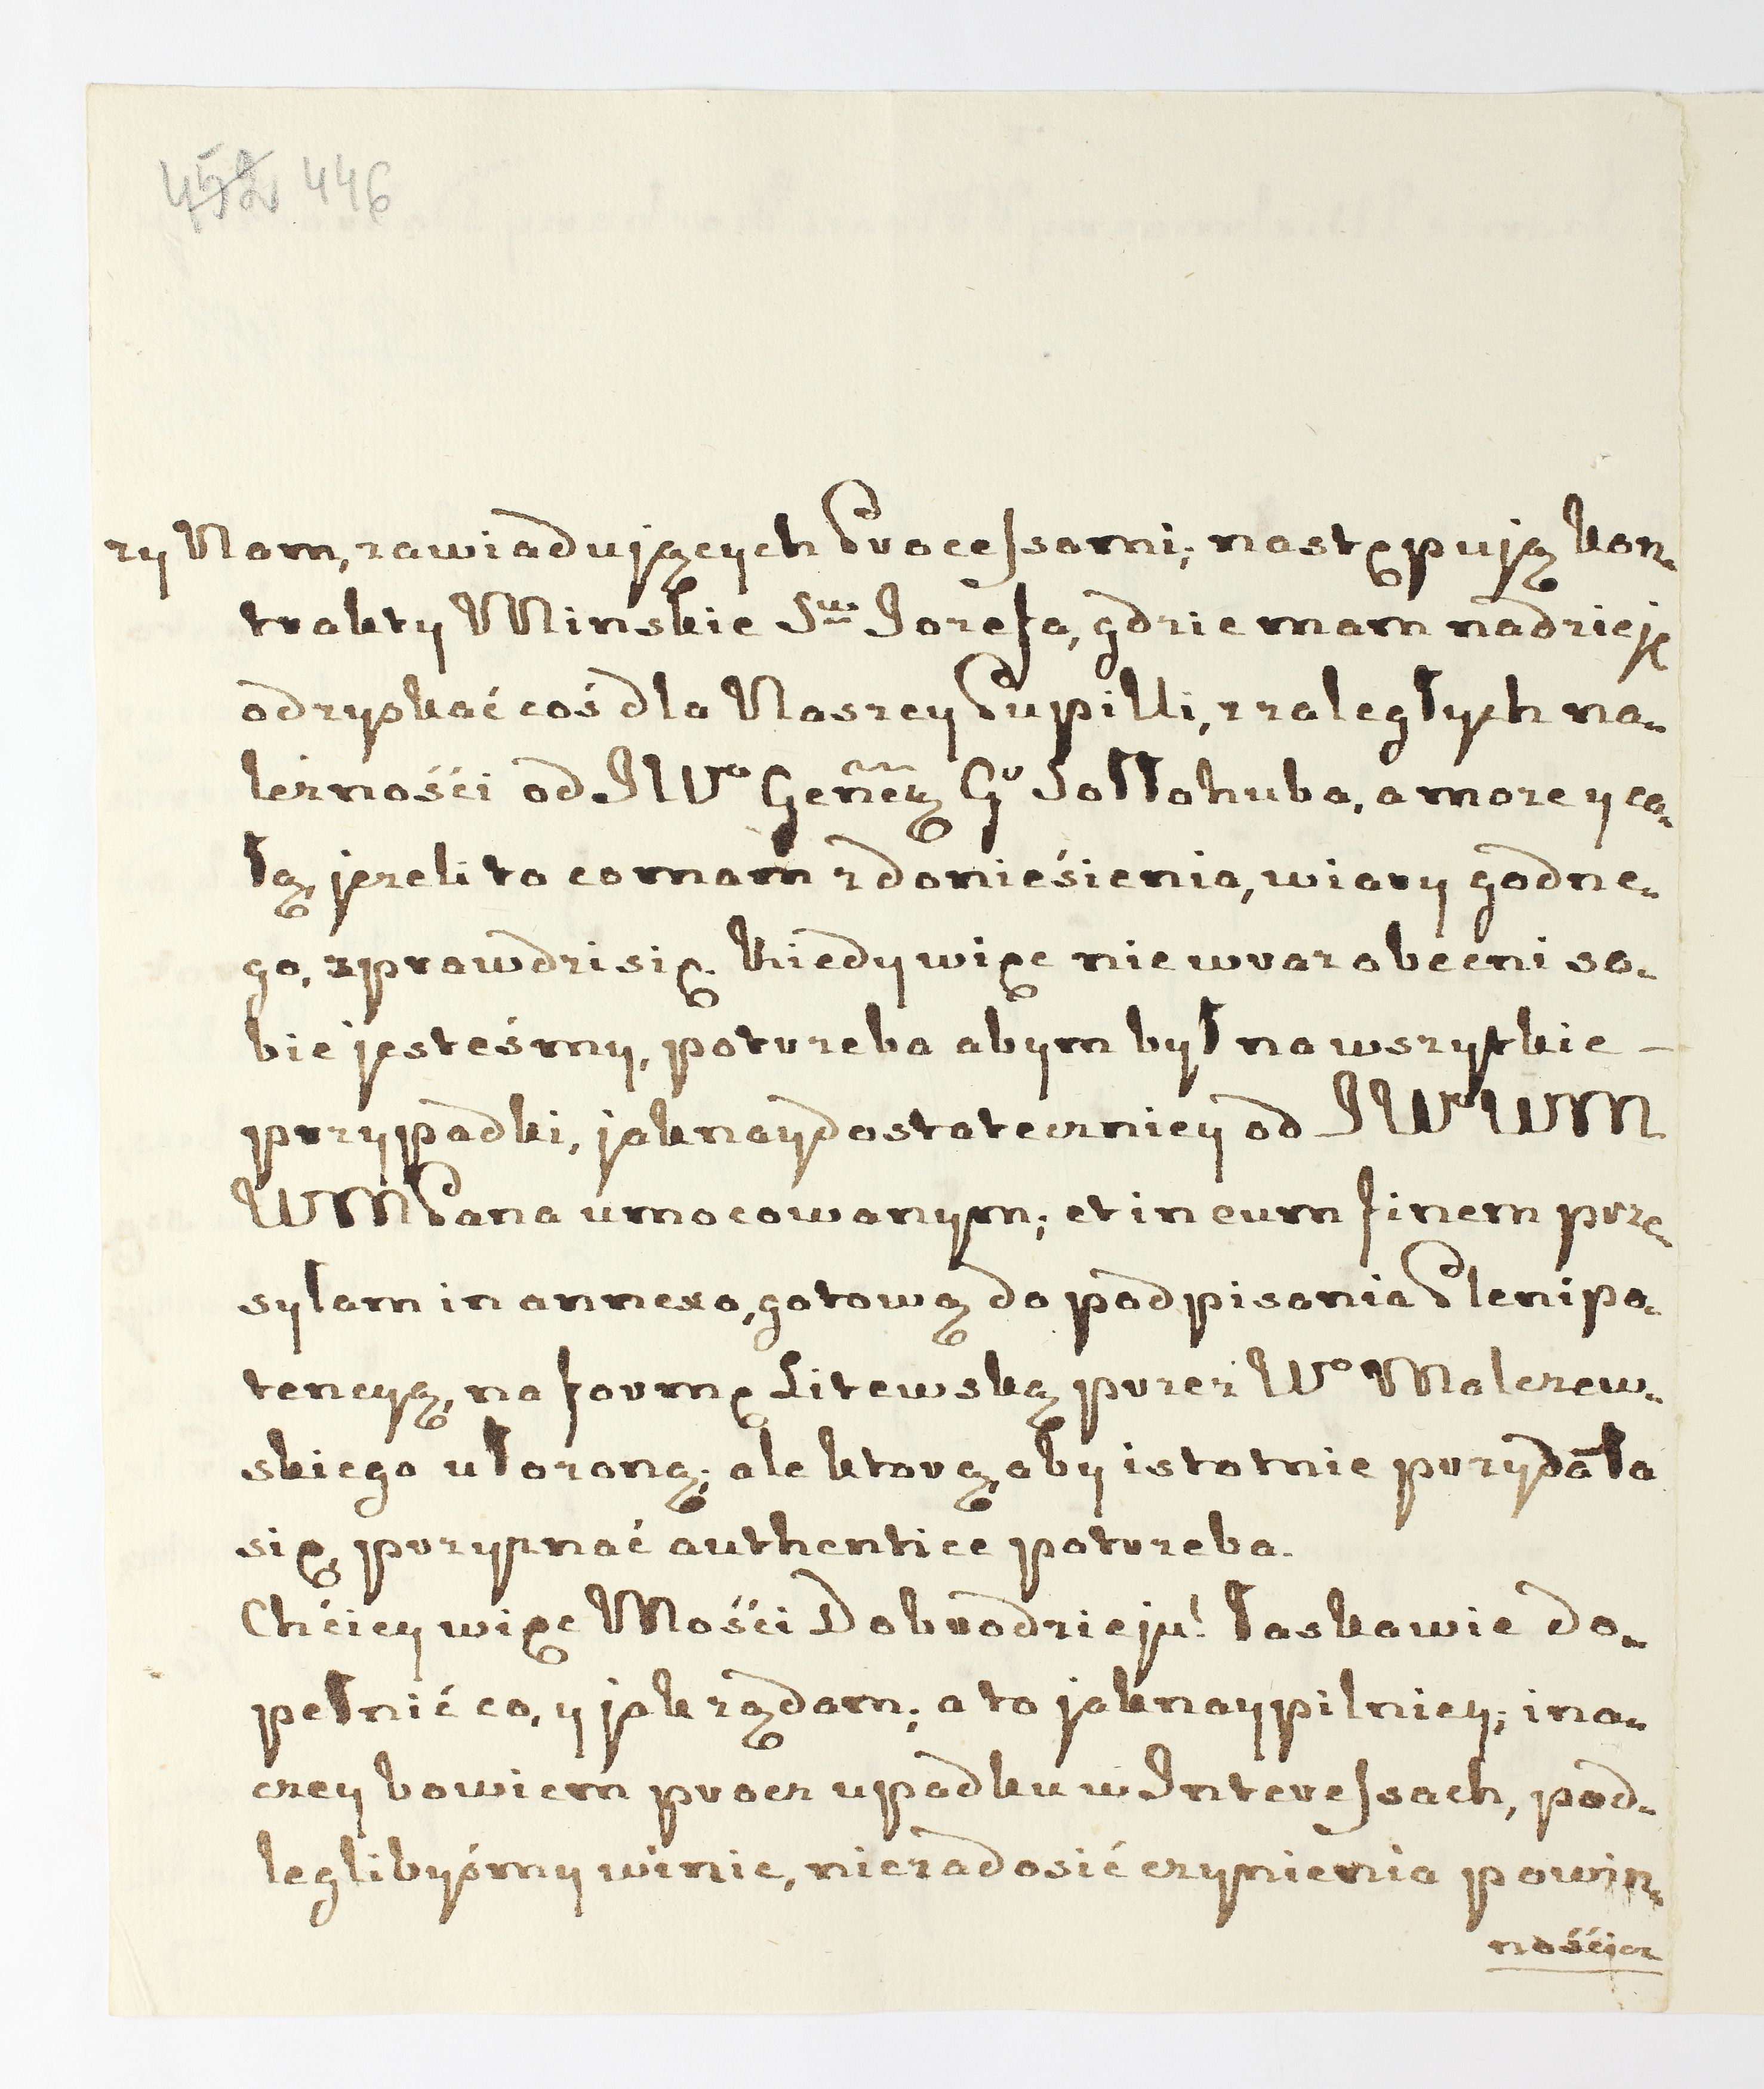 452 446
zy Nam, zawiadujących Processami; następują kon-
trakty Minskie Sgo Jozefa, gdzie mam nadzieję
odzyskać coś dla Naszey Pupilli, z zaległych na-
leżnośći od JWo Generą Gr Sołłohuba, a może y ca-
łą, jezeli to co mam z donieśienia, wiary godne-
go, zprawdzi się. Kiedy więc nie wraz obecni so-
bie jesteśmy, potrzeba abym był na wszytkie –
przypadki, jaknaydostateczniey od JWo WM
WMPana umocowanym; et in eum finem prze-
sylam in annexo, gotową do podpisania Plenipo-
tencyą, na formę Litewską przez Wo Malczew-
skiego ułożoną; ale ktorą, aby istotnie przydała
się, przyznać authentice potrzeba.
Chćiey więc Mośći Dobrodzieju! łaskawie do-
pełnić co, y jak ządam; a to jaknaypilniey; ina-
czey bowiem procz upadku w Interessach, pod-
leglibyśmy winie, niezadosić czynienia powin-
nośćiα